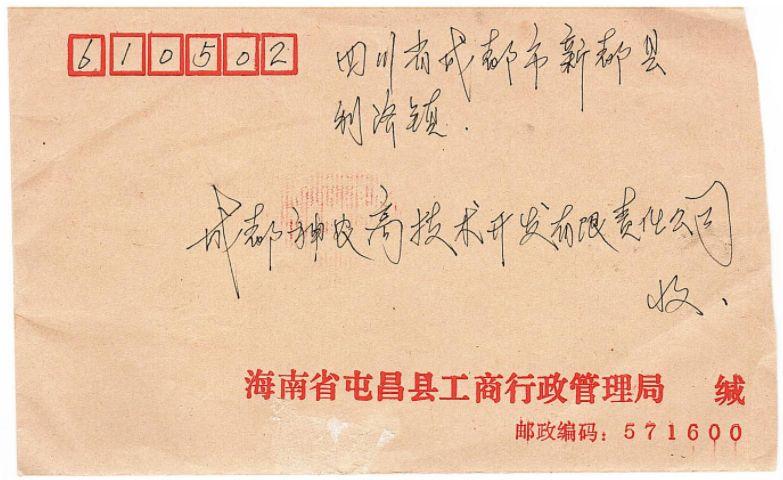 610502
四川省成都市新都县
利济镇.
成都神农高技术开发有限责任公司
收、
海南省屯昌县工商行政管理局 缄
邮政编码:571600